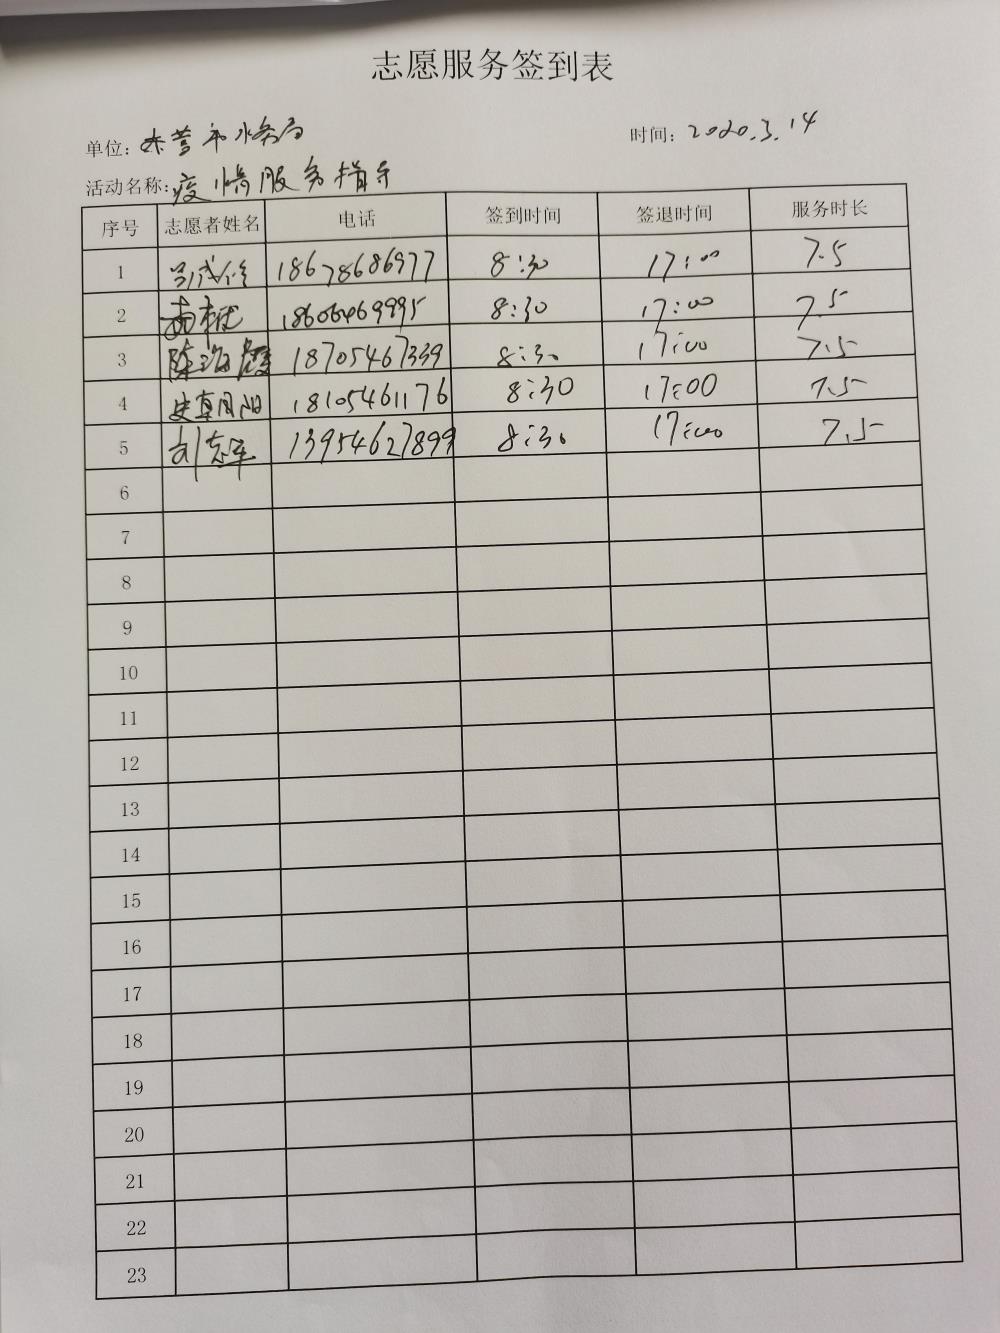 志愿服务签到表
单位：东营市水务局 时间：2020.3.14
活动名称：疫情服务指导
序号 志愿者姓名 电话 签到时间 签退时间 服务时长
1 18678686977 8:30 17:00 7.5
2 18606469995 8:30 17:00 7.5
3 陈海霞 18705467339 8:30 17:00 7.5
4 史真同阳 18105461176 8:30 17:00 7.5
5 刘志军 13954627899 8:30 17:00 7.5
6
7
8
9
10
11
12
13
14
15
16
17
18
19
20
21
22
23